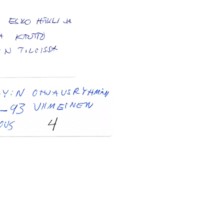 ESKO HÄKLI JA
A KOUTO
N TILOISSA
Y:N OTMAUSRYHMÄN
-93 VIIMEINEN
OUS 4